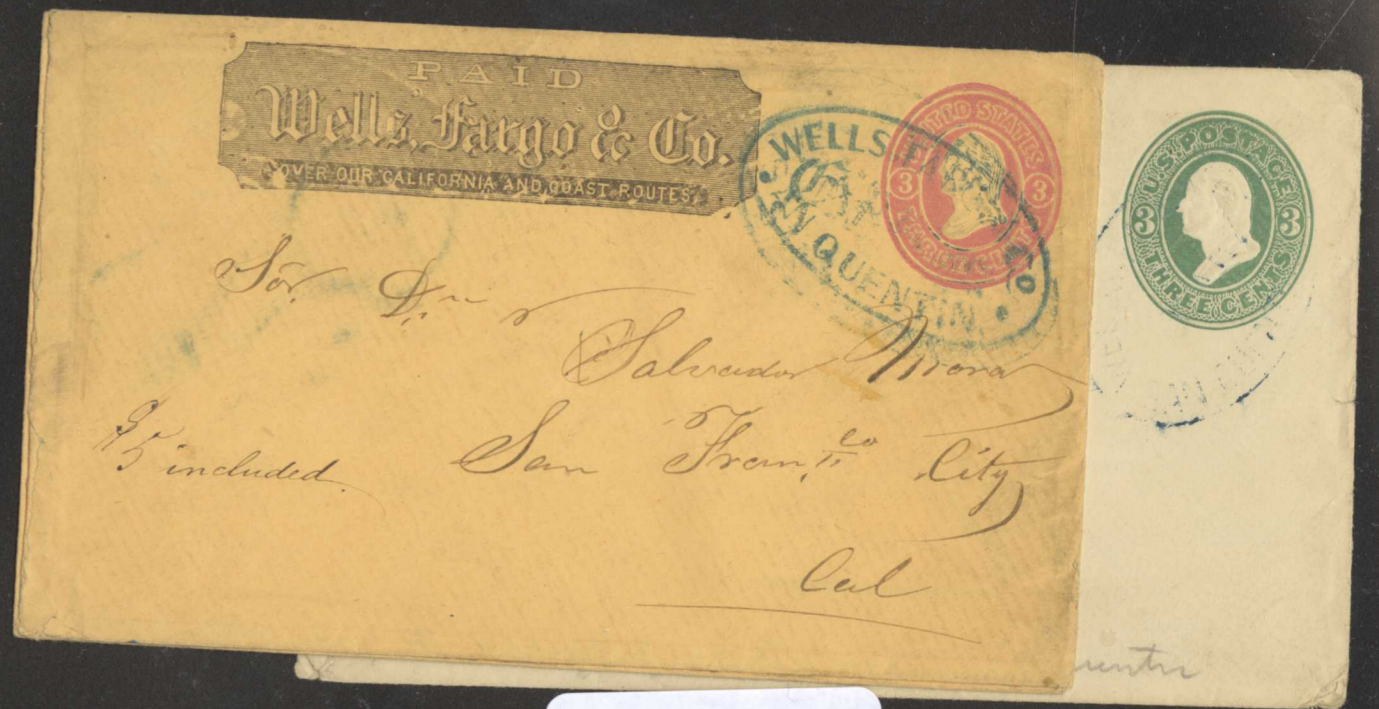 PAID
Wells, Fargo & Co.
OVER OUR CALIFORNIA AND COAST ROUTES.
WELLS FARGO & CO
SN QUENTIN
UNITED STATES
3 3
THREE CENTS
U.S. POSTAGE
3 3
THREE CENTS
Sór. Dn
Salvador Mora
$5 included
San Franco City
Cal